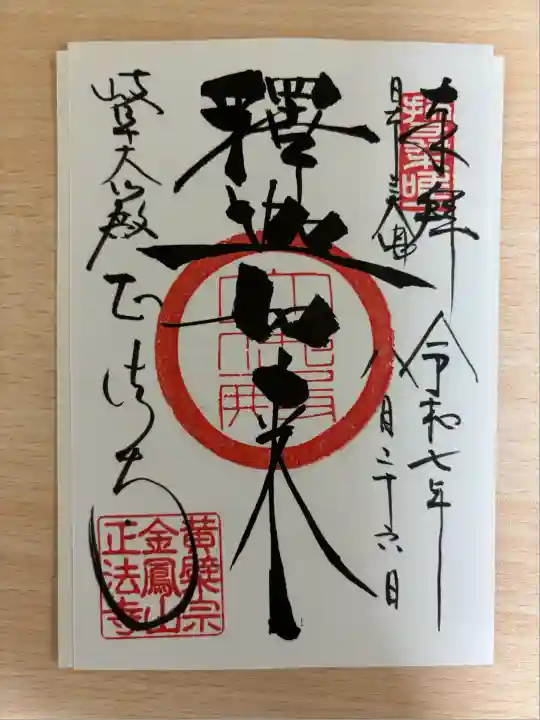 奉拝
日本三大仏
令和七年
八月二十六日
釋迦如来
岐阜大仏殿
正法寺
黄檗宗
金鳳山
正法寺